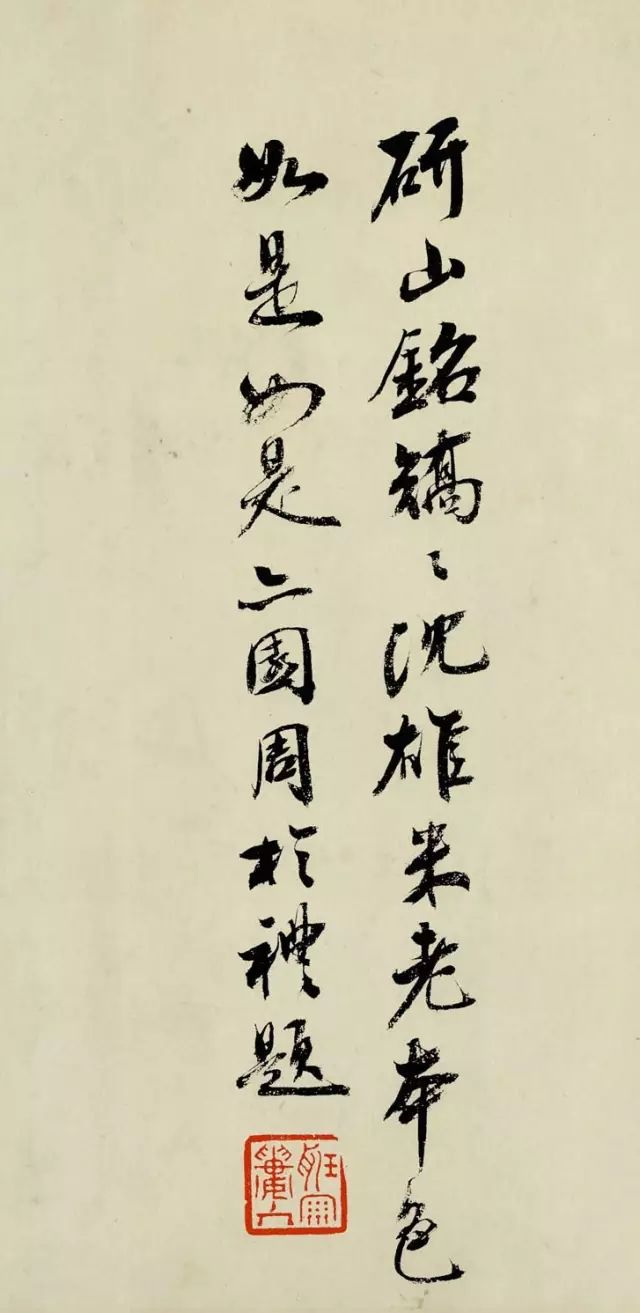 研山銘矯〻沈雄米老本色
如是如是亦園周於禮題